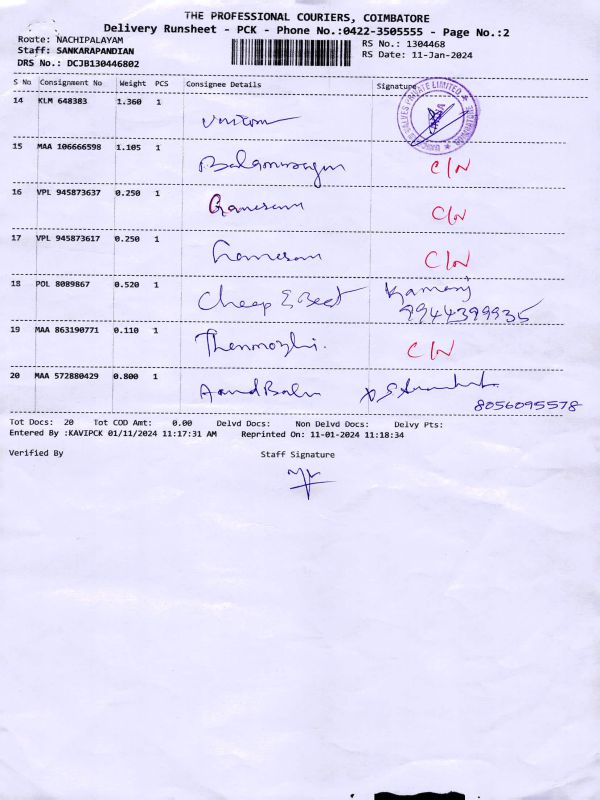 THE PROFESSIONAL COURIERS, COIMBATORE
Delivery Runsheet - PCK - Phone No.:0422-3505555 - Page No.:2
Route: NACHIPALAYAM RS No.: 1304468
Staff: SANKARAPANDIAN RS Date: 11-Jan-2024
DRS No.: DCJB130446802
S No Consignment No Weight PCS Consignee Details Signature
14 KLM 648383 1.360 1
15 MAA 106666598 1.105 1 C/N
16 VPL 945873637 0.250 1 C/N
17 VPL 945873617 0.250 1 C/N
18 POL 8089867 0.520 1 Cheap & Best Kamaraj
9944399935
19 MAA 863190771 0.110 1 Thenmozhi. C/N
20 MAA 572880429 0.800 1 AnandBabu
8056095578
Tot Docs: 20 Tot COD Amt: 0.00 Delvd Docs: Non Delvd Docs: Delvy Pts:
Entered By :KAVIPCK 01/11/2024 11:17:31 AM Reprinted On: 11-01-2024 11:18:34
Verified By Staff Signature